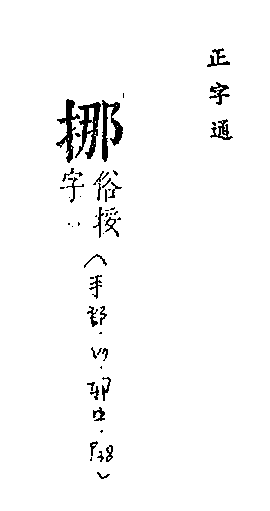 正字通
挪
俗挼
字
(手部.
P38)